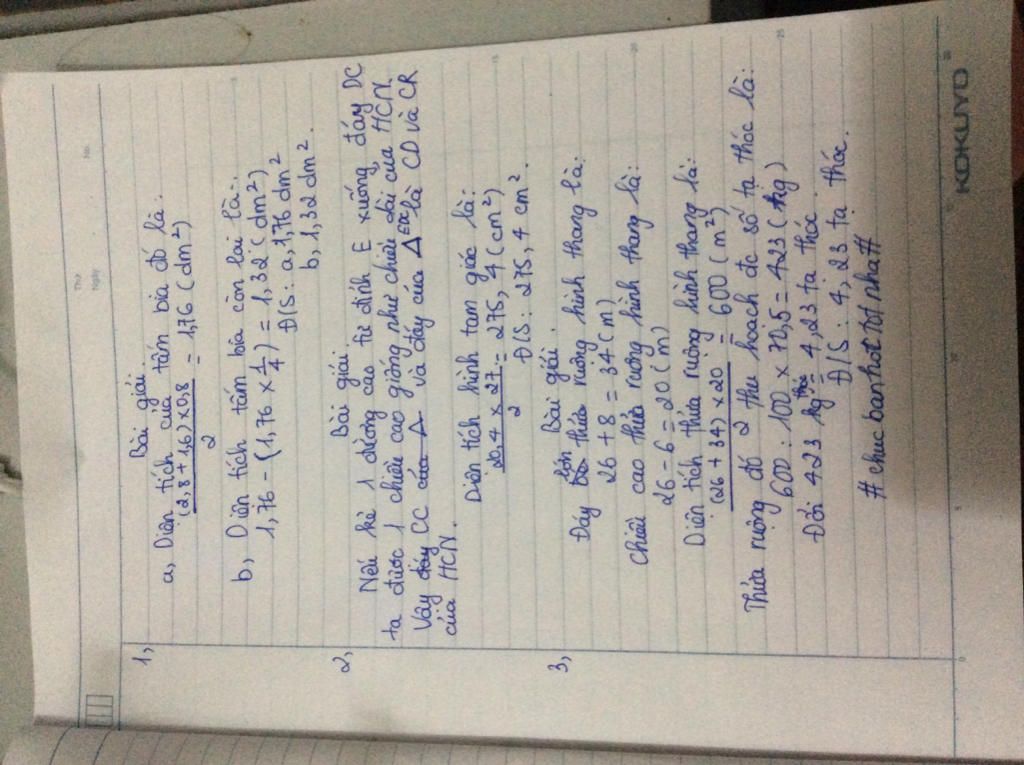 Thứ
Ngày
No.
1,
Bài giải.
a, Diện tích của tấm bìa đó là:
(2,8 + 1,6) x 0,8
2
= 1,76 (dm²)
b, Diện tích tấm bìa còn lại là:
1,76 - (1,76 x 1/4) = 1,32 (dm²)
Đ/S: a, 1,76 dm²
b, 1,32 dm².
2,
Bài giải.
Nếu kẻ 1 đường cao từ đỉnh E xuống đáy DC
ta được 1 chiều cao giống như chiều dài của HCN.
Vậy đáy CC của Δ và đáy của Δ EDC là CD và CR
của HCN.
Diện tích hình tam giác là:
20,4 x 27
2
= 275,4 (cm²)
Đ/S: 275,4 cm².
3,
Bài giải
Đáy lớn thửa ruộng hình thang là:
26 + 8 = 34 (m)
Chiều cao thửa ruộng hình thang là:
26 - 6 = 20 (m)
Diện tích thửa ruộng hình thang là:
(26 + 34) x 20
2
= 600 (m²)
Thửa ruộng đó thu hoạch đc số tạ thóc là:
600 : 100 x 70,5 = 423 (kg)
Đổi 423 kg thóc = 4,23 tạ thóc.
Đ/S: 4,23 tạ thóc.
#chucbanhoctotnha#
KOKUYO